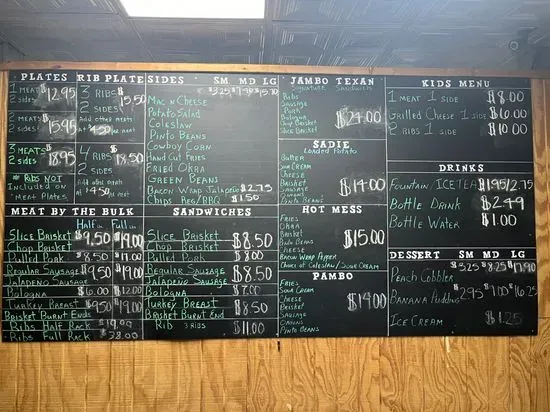 PLATES
1 MEAT
2 SIDES $12.95
2 MEATS
2 SIDES $15.95
3 MEATS
2 SIDES $18.95
* RIBS NOT
INCLUDED ON
"MEAT PLATES
RIB PLATE
3 RIBS
2 SIDES $15.50
ADD OTHER MEATS
AT $4.50
4 RIBS
2 SIDES $18.50
ADD OTHER MEATS
AT $4.50
SIDES SM. MD LG
MAC N CHEESE
POTATO SALAD
COLESLAW
PINTO BEANS
COWBOY CORN
HAND CUT FRIES
FRIED OKRA
GREEN BEANS
BACON WRAP JALAPEÑO $2.75
CHIPS REG/BBQ $1.50
JAMBO TEXAN
SIGNATURE SANDWICH
RIBS
SAUSAGE
PORK
BOLOGNA
CHOP BRISKET
SLICE BRISKET
$24.00
SADIE
LOADED POTATO
BUTTER
SOUR CREAM
CHEESE
BRISKET
SAUSAGE
ONIONS
PINTO BEANS
$14.00
HOT MESS
FRIES
OKRA
BRISKET
BEANS
CHEESE
BACON WRAP PEPPER
CHOICE OF COLESLAW/SOUR CREAM
$15.00
PAMBO
FRIES
SOUR CREAM
CHEESE
BRISKET
SAUSAGE
ONIONS
PINTO BEANS
$14.00
KIDS MENU
1 MEAT 1 SIDE $8.00
GRILLED CHEESE 1 SIDE $6.00
2 RIBS 1 SIDE $10.00
DRINKS
FOUNTAIN ICE TEA $1.95/2.75
BOTTLE DRINK $2.49
BOTTLE WATER $1.00
DESSERT SM MD LG
PEACH COBBLER $3.25 $8.25 $17.90
BANANA PUDDING
ICE CREAM $1.25
MEAT BY THE BULK
HALF LB FULL LB
SLICE BRISKET
CHOP BRISKET $9.50 $19.00
PULLED PORK
REGULAR SAUSAGE
JALAPENO SAUSAGE $9.50 $19.00
BOLOGNA $6.00 $12.00
TURKEY BREAST
BRISKET BURNT ENDS $9.50 $19.00
RIBS HALF RACK $19.00
RIBS FULL RACK $38.00
SANDWICHES
SLICE BRISKET
CHOP BRISKET $8.50
PULLED PORK $8.00
REGULAR SAUSAGE
JALAPENO SAUSAGE $8.50
BOLOGNA $7.00
TURKEY BREAST
BRISKET BURNT END $8.50
RIB 3 RIBS $11.00